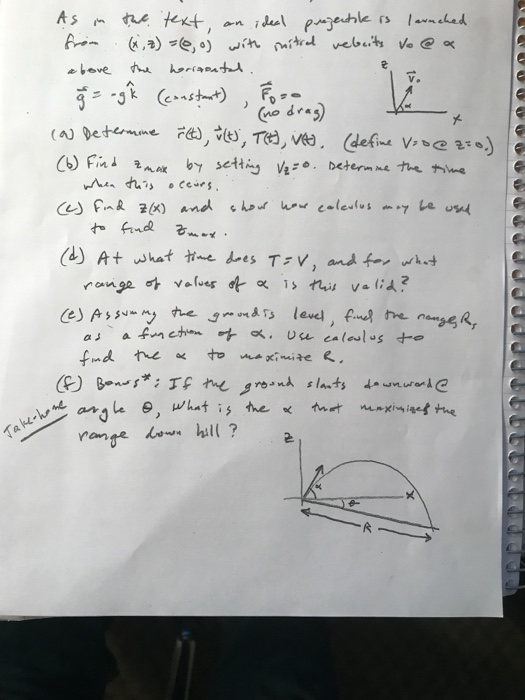 As in the text, an ideal projectile is launched
from (x,z) = (0,0) with initial velocity V₀ @ α
above the horizontal.
z
V⃗₀
α
x
g⃗ = -gk̂ (constant), F⃗_D = 0
(no drag)
(a) Determine r⃗(t), v⃗(t), T(t), V(t). (define V=0 @ z=0.)
(b) Find z_max by setting V_z=0. Determine the time
when this occurs.
(c) Find z(x) and show how calculus may be used
to find z_max.
(d) At what time does T=V, and for what
range of values of α is this valid?
(e) Assuming the ground is level, find the range, R,
as a function of α. Use calculus to
find the α to maximize R.
(f) Bonus*: If the ground slants downward @
Take-home
angle θ, what is the α that maximizes the
range down hill?
z
α
x
θ
R